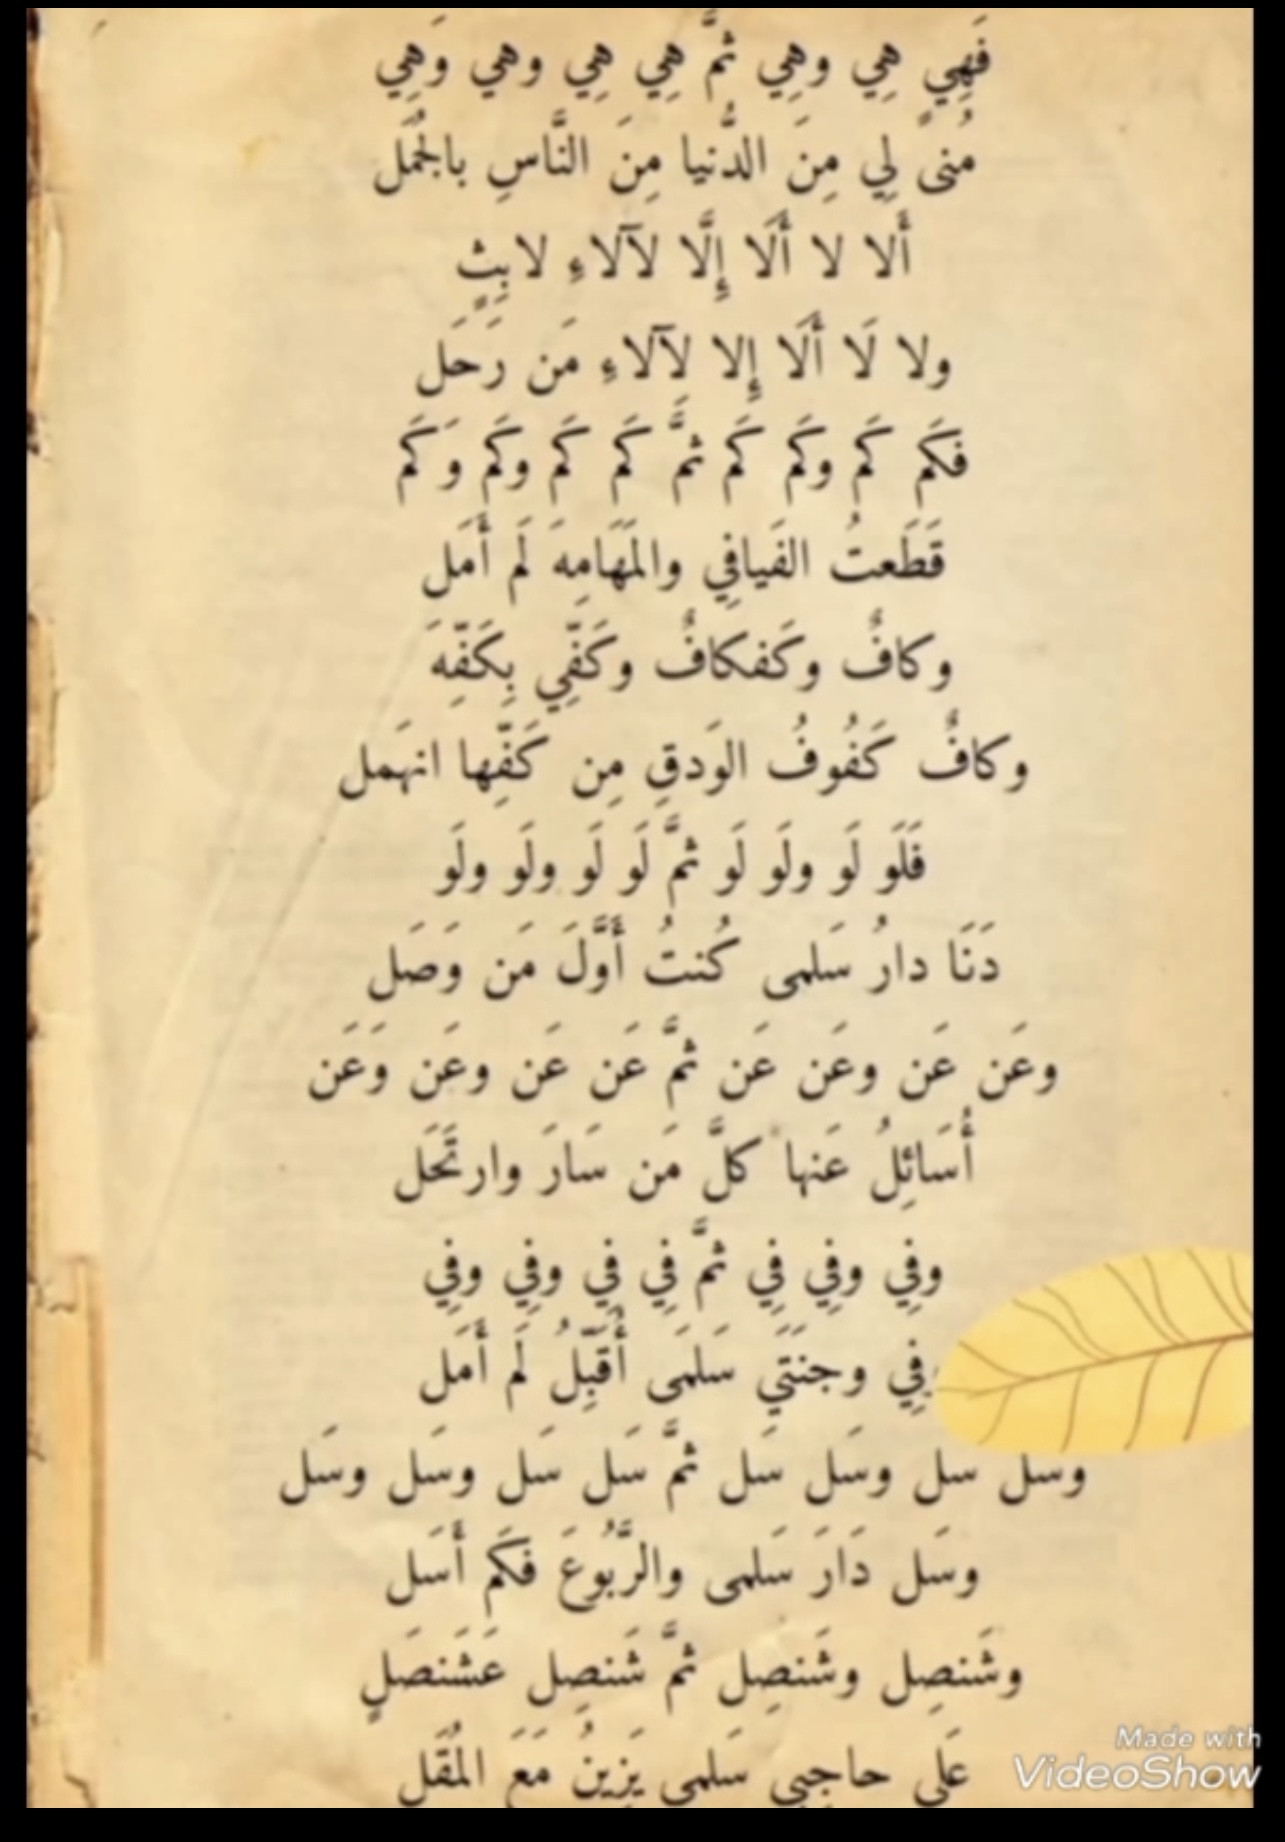 فَهِي هِي وهِي ثمَّ هِي هِي وهي وَهِي
مُنىً لِي مِنَ الدُّنيا مِنَ النَّاسِ بالجُمَل
أَلا لا أَلَا إِلَّا لآلاءِ لابِثٍ
ولا لَا أَلَا إِلا لِآلاءِ مَن رَحَل
فكَم كَم وكَم كَم ثمَّ كَم كَم وكَم وَكَم
قَطَعتُ الفَيافِي والمَهَامِهَ لَم أَمَل
وكافٌ وكَفكافٌ وكَفِّي بِكَفِّهَ
وكافٌ كَفُوفُ الوَدقِ مِن كَفِّها انهَمل
فَلَو لَو ولَو لَو ثمَّ لَو لَو ولَو ولَو
دَنَا دارُ سَلمى كُنتُ أَوَّلَ مَن وَصَل
وعَن عَن وعَن عَن ثمَّ عَن عَن وعَن وَعَن
أُسَائِلُ عَنها كلَّ مَن سَارَ وارتَحَل
وفِي وفِي فِي ثمَّ فِي فِي وفِي وفِي
وفِي وجنَتَي سَلمَى أُقَبِّلُ لَم أَمَل
وسل سل وسَل سَل ثمَّ سَل سَل وسَل وسَل
وسَل دَارَ سَلمى والرَّبُوعَ فكَم أَسَل
وشَنصِل وشَنصِل ثمَّ شَنصِل عَشَنصَلٍ
عَلى حاجِبي سَلمى يَزِينُ مَعَ المُقَل
Made with
VideoShow